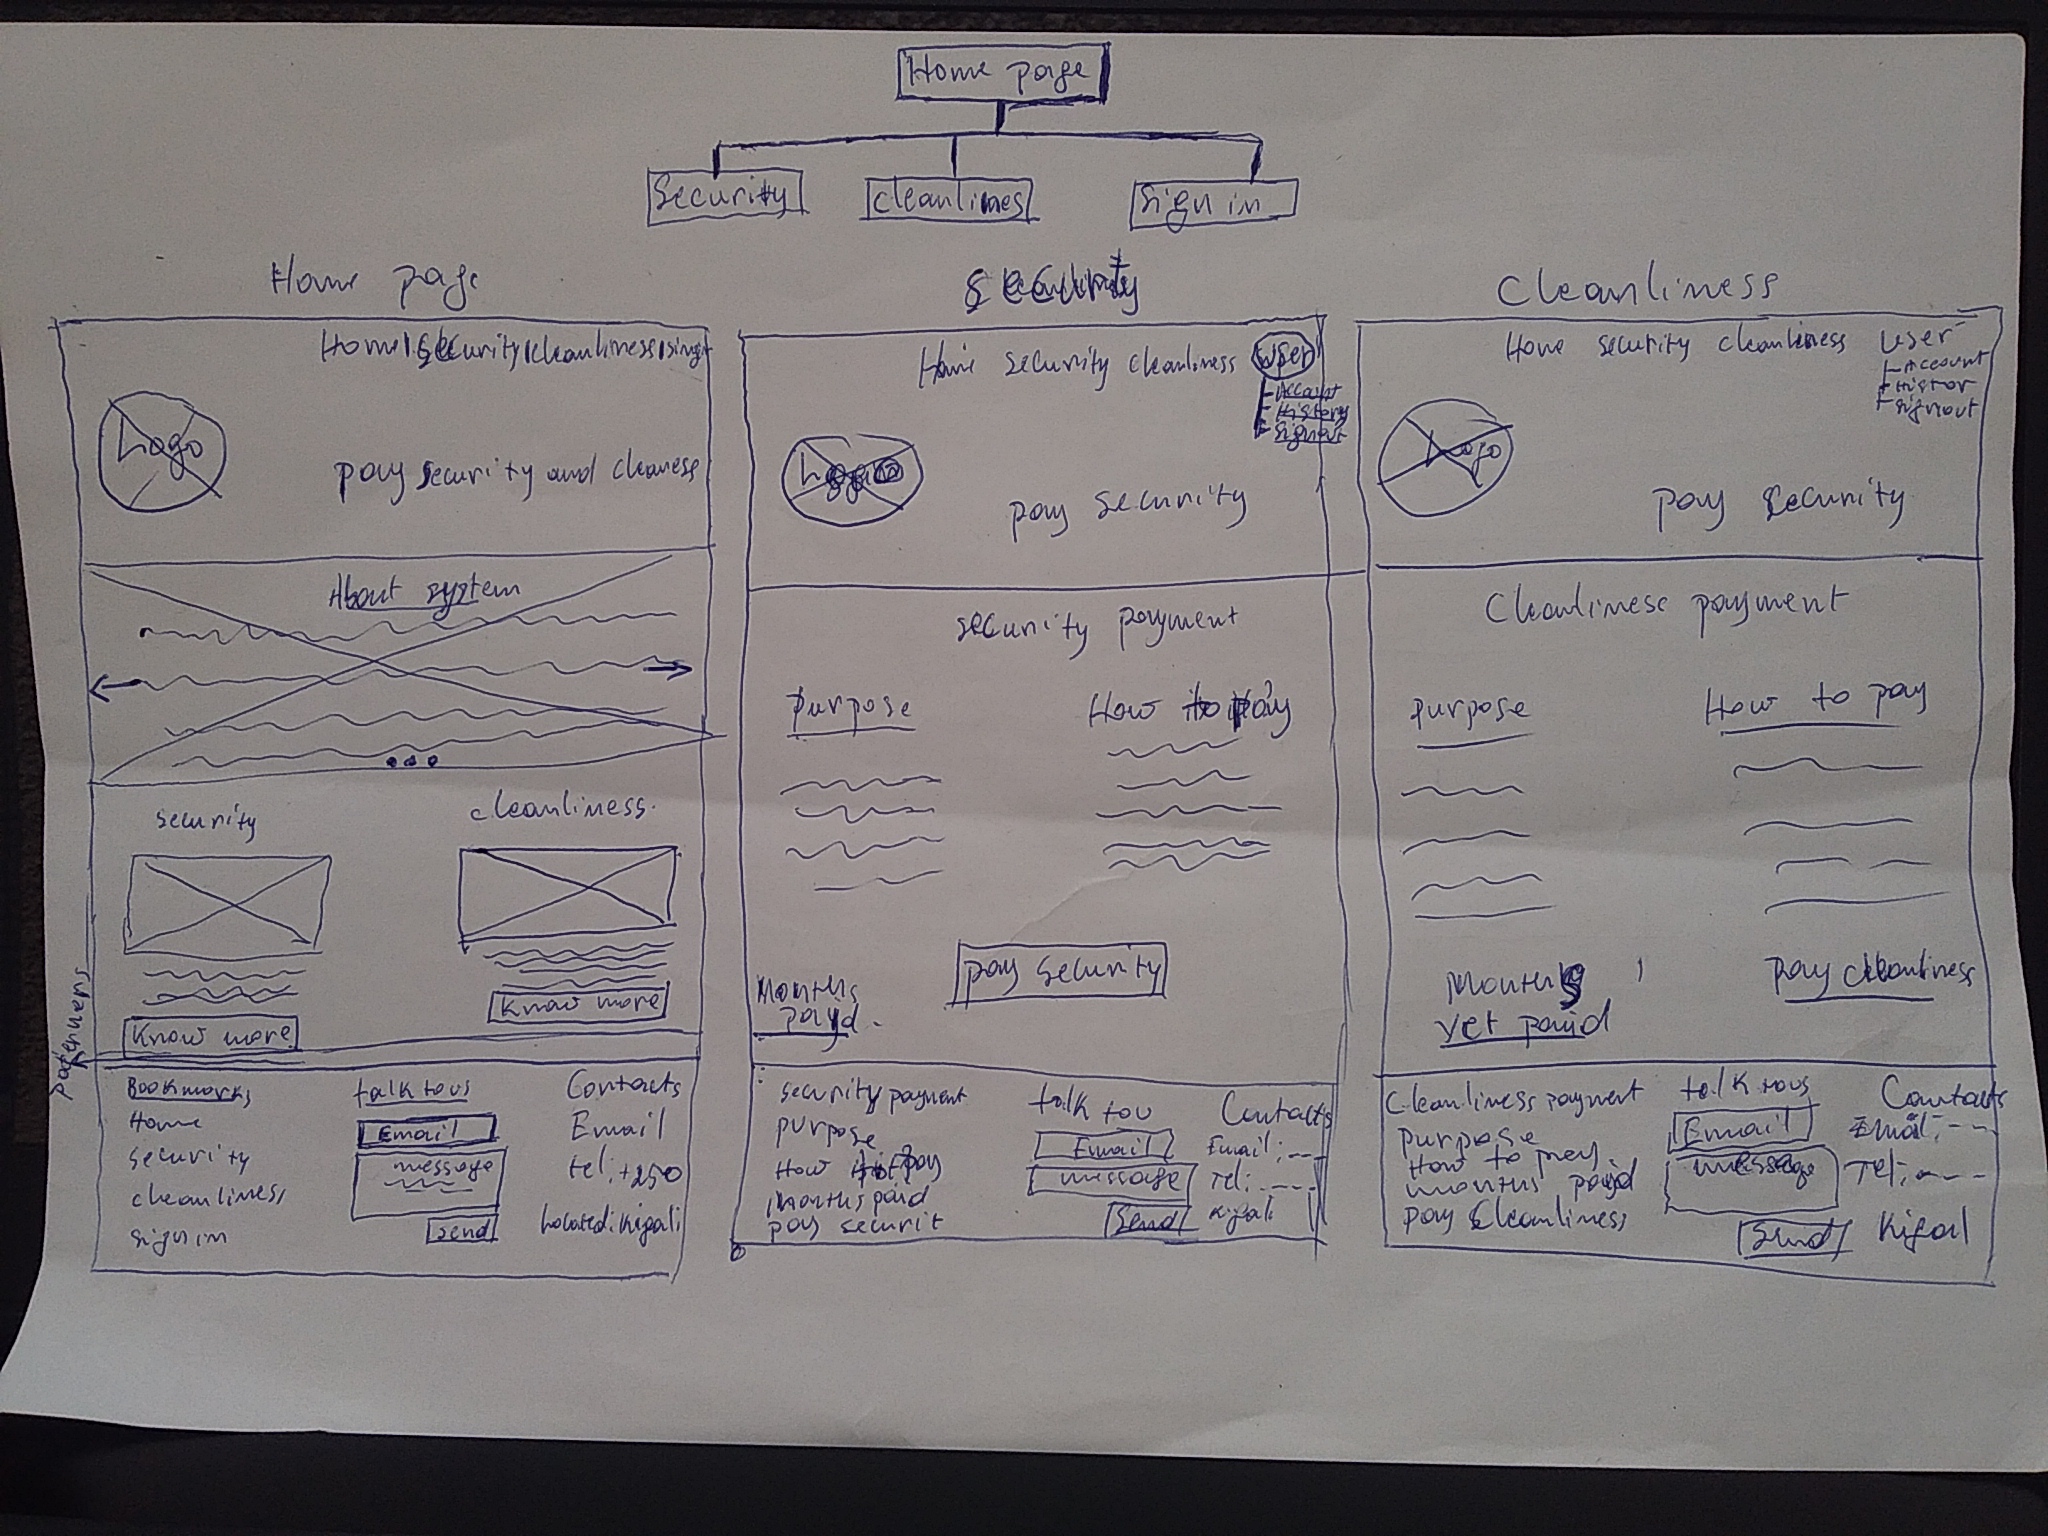 Home page
Security
cleanlines
Sign in
Home page
Security
Cleanliness
Home|security|cleanliness|singin
Logo
pay security and cleaness
About system
security
cleanliness.
Know more
Know more
Partenners
Bookmarks
Home
security
cleanliness
sign in
talk to us
Email
message
send
Contacts
Email
tel: +250
Located: Kigali
Home security cleanliness user
Account
History
Signout
pay security
security payment
purpose
How to pay
pay security
Months
payd.
security payment
purpose
How to pay
months paid
pay securit
talk tou
Email
message
Send
Contacts
Email: --
Tel: ----
Kigali
Home security cleanliness user
Account
Histor
signout
Logo
pay security
Cleanlinesc payment
purpose
How to pay
Months
yet paid
pay cleanliness
Cleanliness payment
purpose
How to pay.
months payd
pay Cleanliness
talk to us
Email
message
Send
Contacts
Email: --
Tel: ---
Kigal